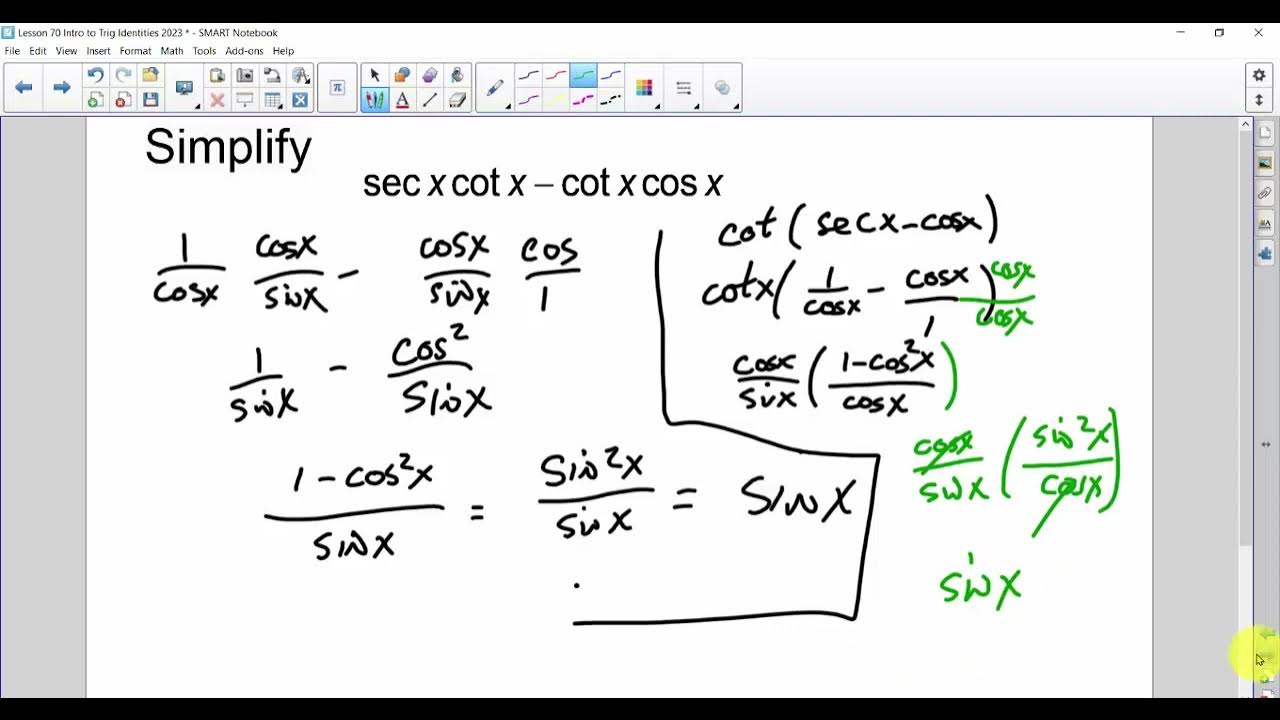 Lesson 70 Intro to Trig Identities 2023 * - SMART Notebook
File Edit View Insert Format Math Tools Add-ons Help
π
A
Simplify
sec x cot x – cot x cos x
1/cosx cosx/sinx – cosx/sinx cos/1
1/sinx – cos²/sinx
1 – cos²x/sinx = sin²x/sinx = sinx
cot(secx – cosx)
cotx(1/cosx – cosx/1) cosx/cosx
cosx/sinx (1–cos²x/cosx)
cosx/sinx (sin²x/cosx)
sinx